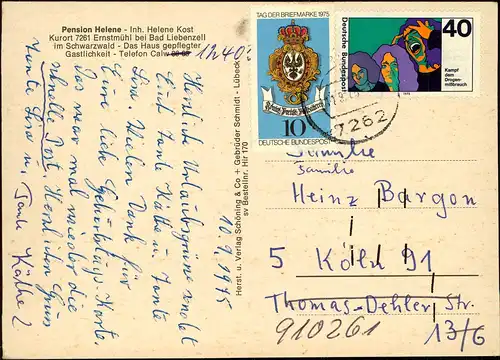 Pension Helene - Inh. Helene Kost
Kurort 7261 Ernstmühl bei Bad Liebenzell
im Schwarzwald - Das Haus gepflegter
Gastlichkeit - Telefon Calw
12402
10.9.1975
Herzliche Urlaubsgrüße sendet
Euch Tante Käthe u. Tante
Lina. Vielen Dank für
Eure liebe Geburtstags-Karte.
Es war mal wieder die
schnelle Post. Herzlichen Gruss
Tante Lina u. Tante Käthe
Herst. u. Verlag Schöning & Co + Gebrüder Schmidt - Lübeck
sv Bestellnr. Hir 170
TAG DER BRIEFMARKE 1975
10
DEUTSCHE BUNDESPOST
Deutsche Bundespost
40
Kampf
dem
Drogen-
mißbrauch
1975
7262
Familie
Familie
Heinz Bargon
5 Köln 91
Thomas-Dehler-Str.
910261 13/6